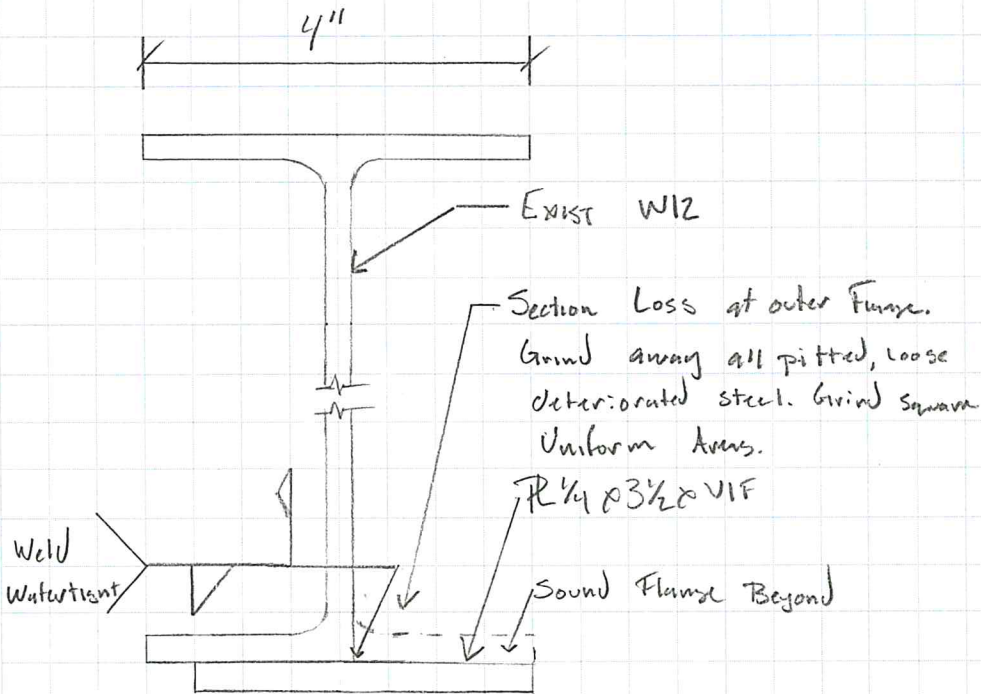 4"
Exist W12
Section Loss at outer Flange.
Grind away all pitted, loose
deteriorated steel. Grind square
Uniform Areas.
PL 1/4 x 3 1/2 x VIF
Weld
Watertight
Sound Flange Beyond